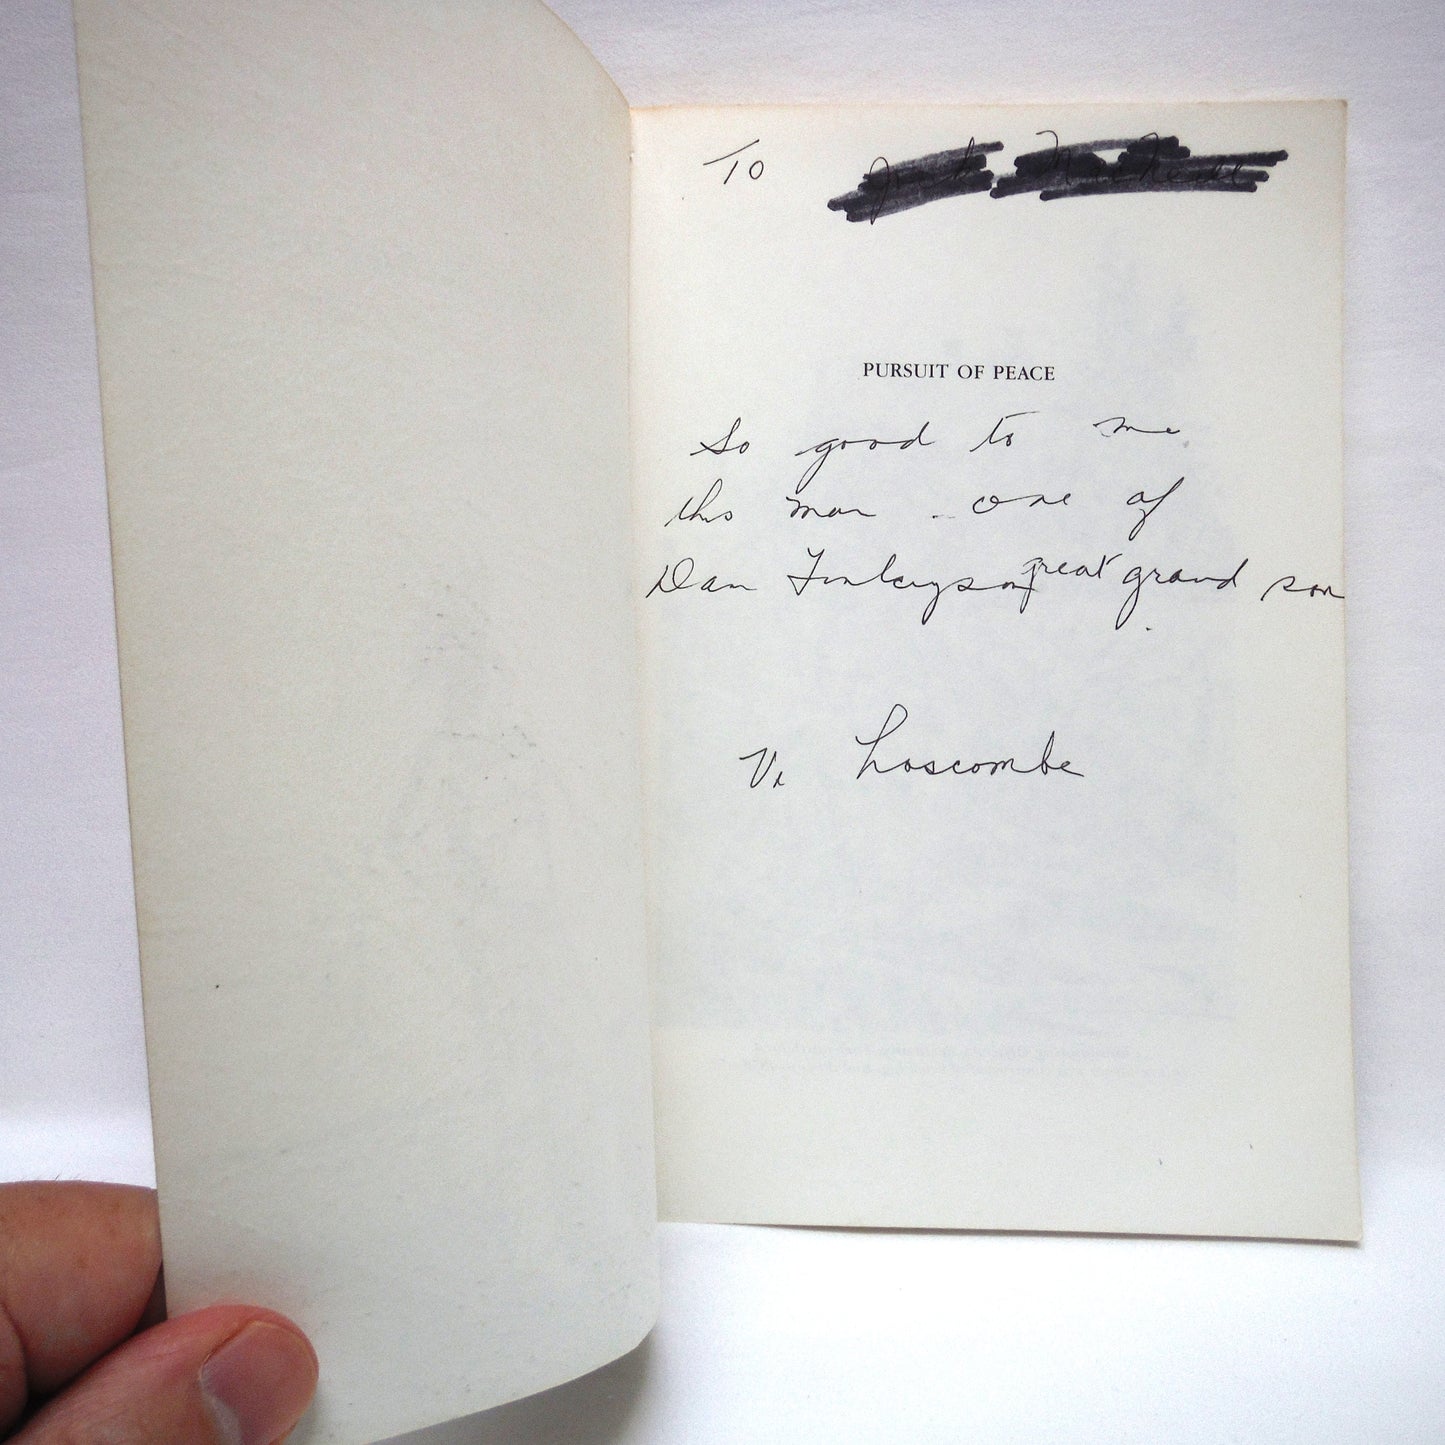 To
PURSUIT OF PEACE
So good to me
this man - one of
Dan Finlayson great grand son
Vi Loscombe